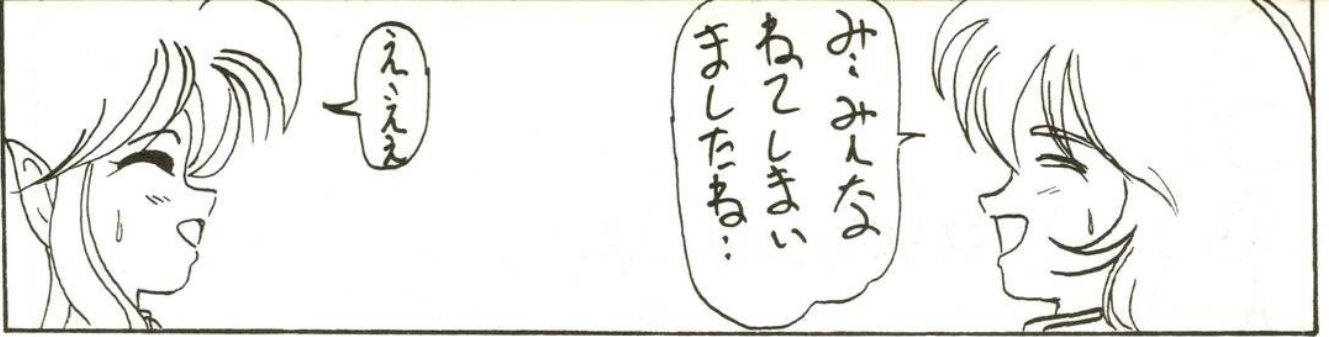 み、みんな
ねてしまい
ましたね‥
え、ええ